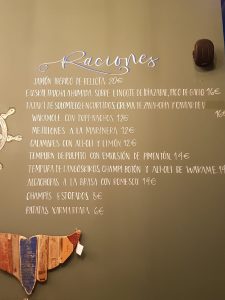 Raciones
JAMÓN IBÉRICO DE BELLOTA 20€
TRUCHA AHUMADA SOBRE LINGOTE DE PICO DE GALLO 16€
TATAKI DE SOLOMILLO ENCURTIDOS, CREMA DE ZANAHORIA Y
16€
WAKAMOLE CON TOPPNACHOS 12€
MEJILLONES A LA MARINERA 12€
CALAMARES CON ALI-OLI Y LIMÓN 12€
TEMPURA DE PULPITO CON EMULSIÓN DE PIMENTÓN. 14€
TEMPURA DE LANGOSTINOS, CHAMPI BOTÓN Y ALI-OLI DE WAKAME. 14€
ALCACHOFAS A LA BRASA CON ROMESCU 14€
CHAMPIS ESTOFADOS 8€
PATATAS 6€